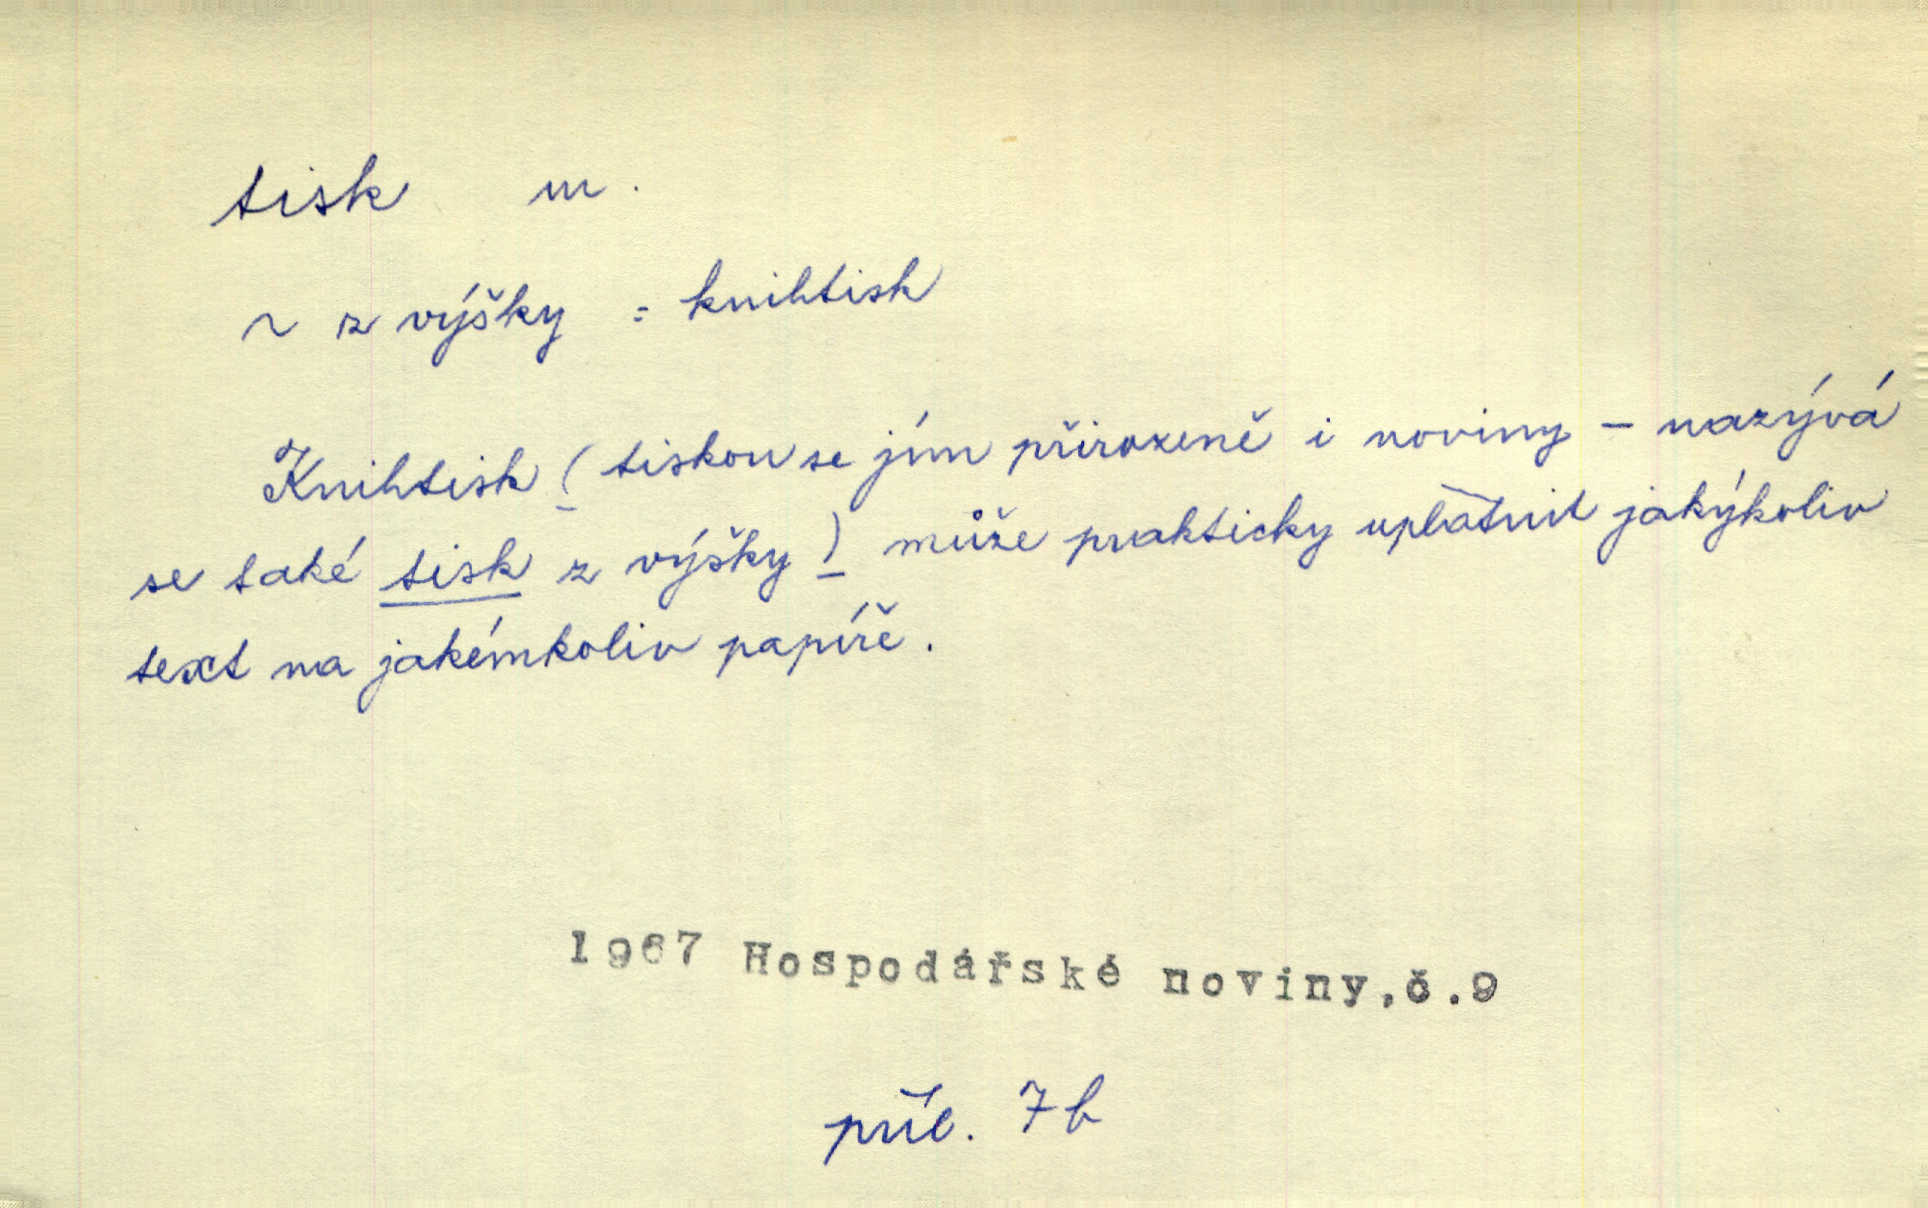 tisk m.
~ z výšky = knihtisk
Knihtisk (tiskou se jím přirozeně i noviny – nazývá
se také tisk z výšky) může prakticky uplatnit jakýkoliv
text na jakémkoliv papíře.
1967 Hospodářské noviny,č.9
příl. 7b